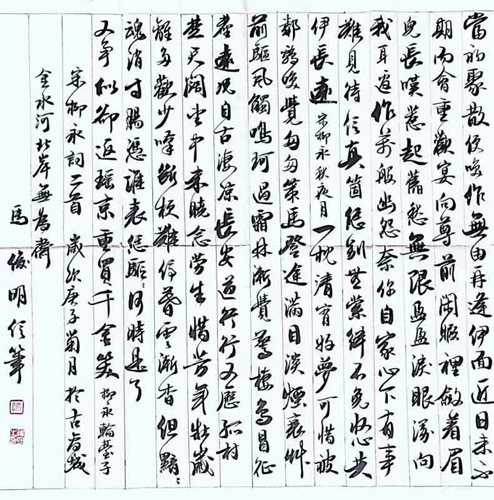 當初聚散便喚作無由再逢伊面近日来不
期而會重歡宴向尊前閑暇裡斂着眉
兒長嘆惹起舊愁無限盈盈淚眼漫向
我耳邊作萬般幽怨奈你自家心下有事
難見待信真箇恁別無縈絆不免收心共
伊長遠 宋柳永秋夜月 一枕清宵好夢可惜被
鄰鷄喚覺匆匆策馬登途滿目淡煙衰草
前驅風觸鳴珂過霜林漸覺驚棲鳥冒征
塵遠況自古淒涼長安道行行又歷孤村
楚天闊望中未曉念勞生惜芳年壯歲
離多歡少嘆斷梗難停暮雲漸杳但黯黯
魂消寸腸憑誰表恁驅驅何時是了
又爭似卻返瑤京重買千金笑 柳永輪臺子
宋柳永詞二首 歲次庚子菊月於古
金水河北岸無為齋
馬俊明信筆